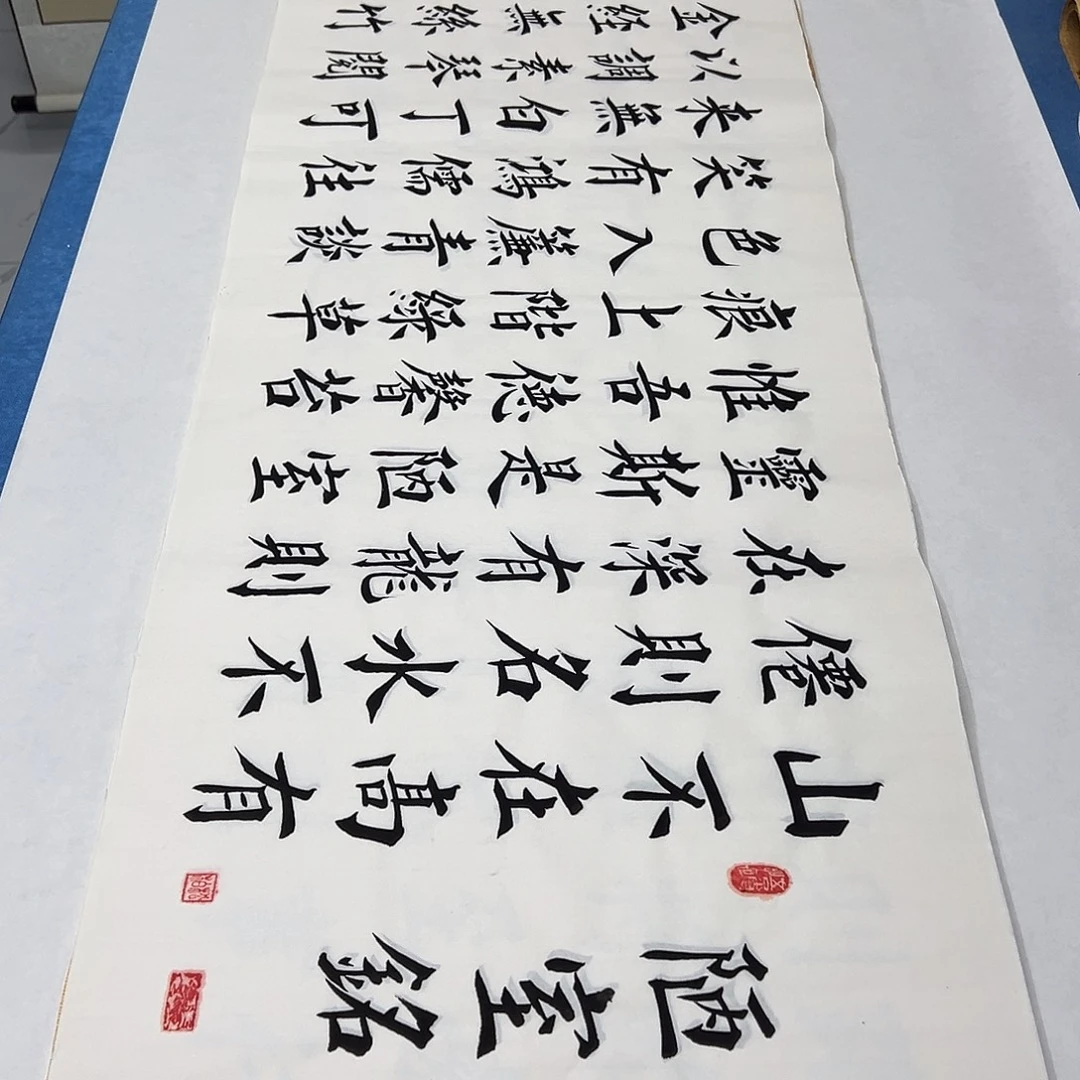 陋室銘
山不在高有
僊則名水不
在深有龍則
靈斯是陋室
惟吾德馨苔
痕上階綠草
色入簾青談
笑有鴻儒往
来無白丁可
以調素琴閱
金經無絲竹